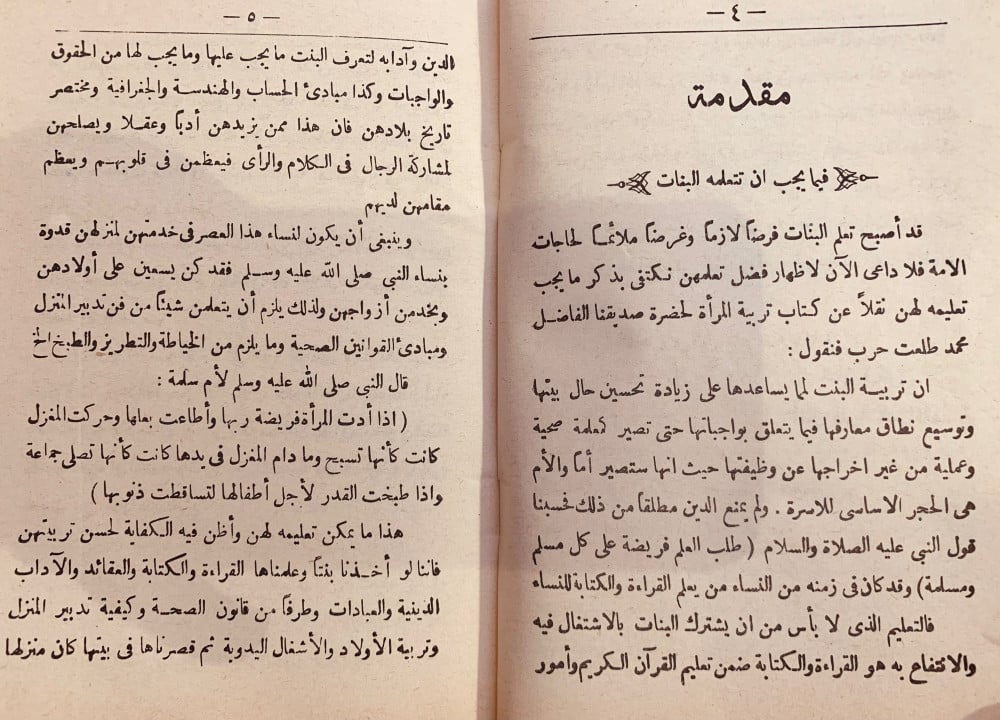 — ٤ —
مقدمة
فيما يجب ان تتعلمه البنات
قد أصبح تعلم البنات فرضاً لازماً وغرضاً ملائماً لحاجات
الامة فلا داعى الآن لاظهار فضل تعلمهن نكتفى بذكر ما يجب
تعليمه لهن نقلاً عن كتاب تربية المرأة لحضرة صديقنا الفاضل
محمد طلعت حرب فنقول :
ان تربية البنت لما يساعدها على زيادة تحسين حال بيتها
وتوسيع نطاق معارفها فيما يتعلق بواجباتها حتى تصير كعلمة صحية
وعملية من غير اخراجها عن وظيفتها حيث انها ستصير أماً والأم
هى الحجر الاساسى للاسرة . ولم يمنع الدين مطلقاً من ذلك فحسبنا
قول النبي عليه الصلاة والسلام ( طلب العلم فريضة على كل مسلم
ومسلمة ) وقد كان فى زمنه من النساء من يعلم القراءة والكتابة للنساء
فالتعليم الذى لا بأس من ان يشترك البنات بالاشتغال فيه
والانتفاع به هو القراءة والكتابة ضمن تعليم القرآن الكريم وأمور
— ٥ —
الدين وآدابه لتعرف البنت ما يجب عليها وما يجب لها من الحقوق
والواجبات وكذا مبادئ الحساب والهندسة والجغرافية ومختصر
تاريخ بلادهن فان هذا ممن يزيدهن أدباً وعقلا ويصلحهن
لمشاركة الرجال فى الكلام والرأى فيعظمن فى قلوبهم ويعظم
مقامهن لديهم
وينبغى أن يكون لنساء هذا العصر فى خدمتهن لمنزلهن قدوة
بنساء النبي صلى الله عليه وسلم فقد كن يسعين على أولادهن
ويخدمن أزواجهن ولذلك يلزم أن يتعلمن شيئاً من فن تدبير المنزل
ومبادئ القوانين الصحية وما يلزم من الخياطة والتطريز والطبخ الخ
قال النبي صلى الله عليه وسلم لأم سلمة :
( اذا أدت المرأة فريضة ربها وأطاعت بعلها وحركت المغزل
كانت كأنها تسبح وما دام المغزل فى يدها كانت كأنها تصلى جماعة
واذا طبخت القدر لأجل أطفالها لتساقطت ذنوبها )
هذا ما يمكن تعليمه لهن وأظن فيه الكفاية لحسن تربيتهن
فاننا لو أخذنا بنتاً وعلمناها القراءة والكتابة والعقائد والآداب
الدينية والعبادات وطرفاً من قانون الصحة وكيفية تدبير المنزل
وتربية الأولاد والأشغال اليدوية ثم قصرناها فى بيتها كان منزلها